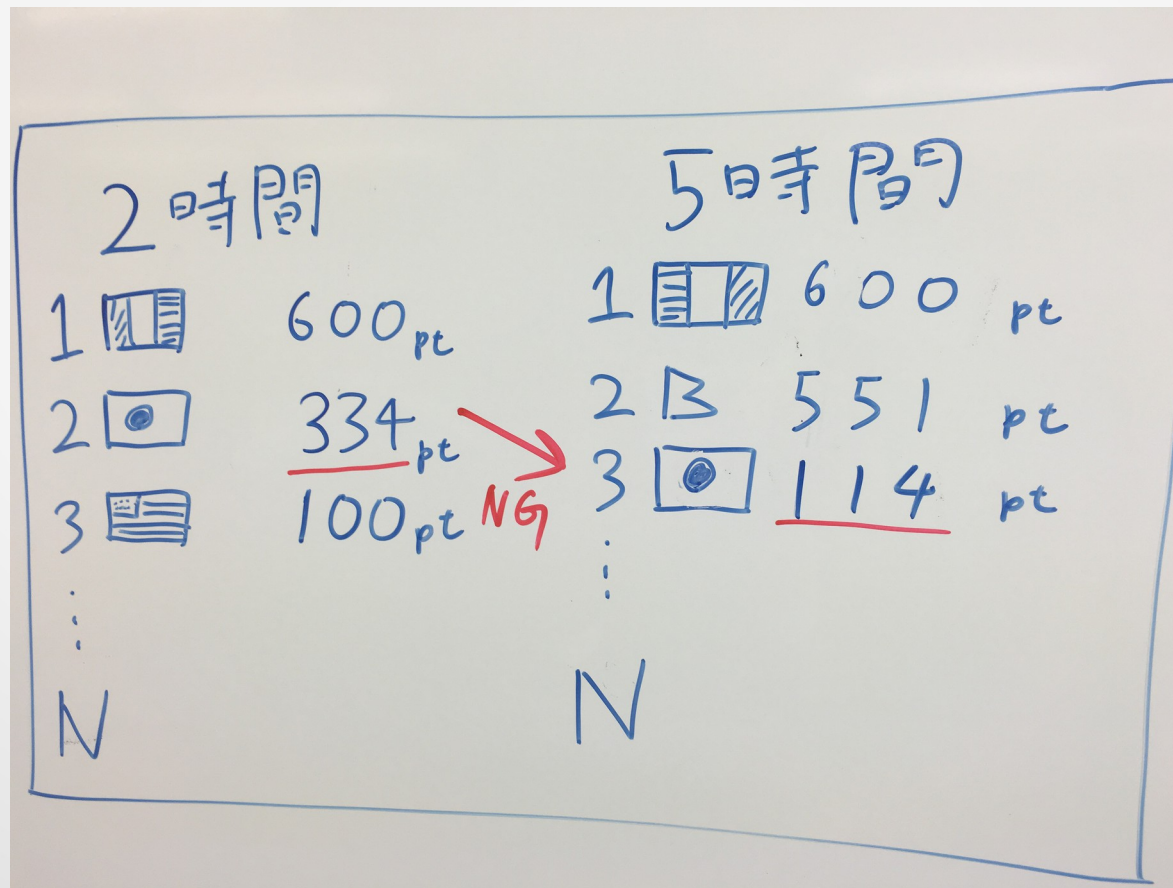 2時間
1 600pt
2 334pt
3 100pt
NG
N
5時間
1 600 pt
2 B 551 pt
3 114 pt
N